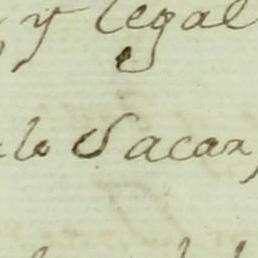 y legal
lo Sacar